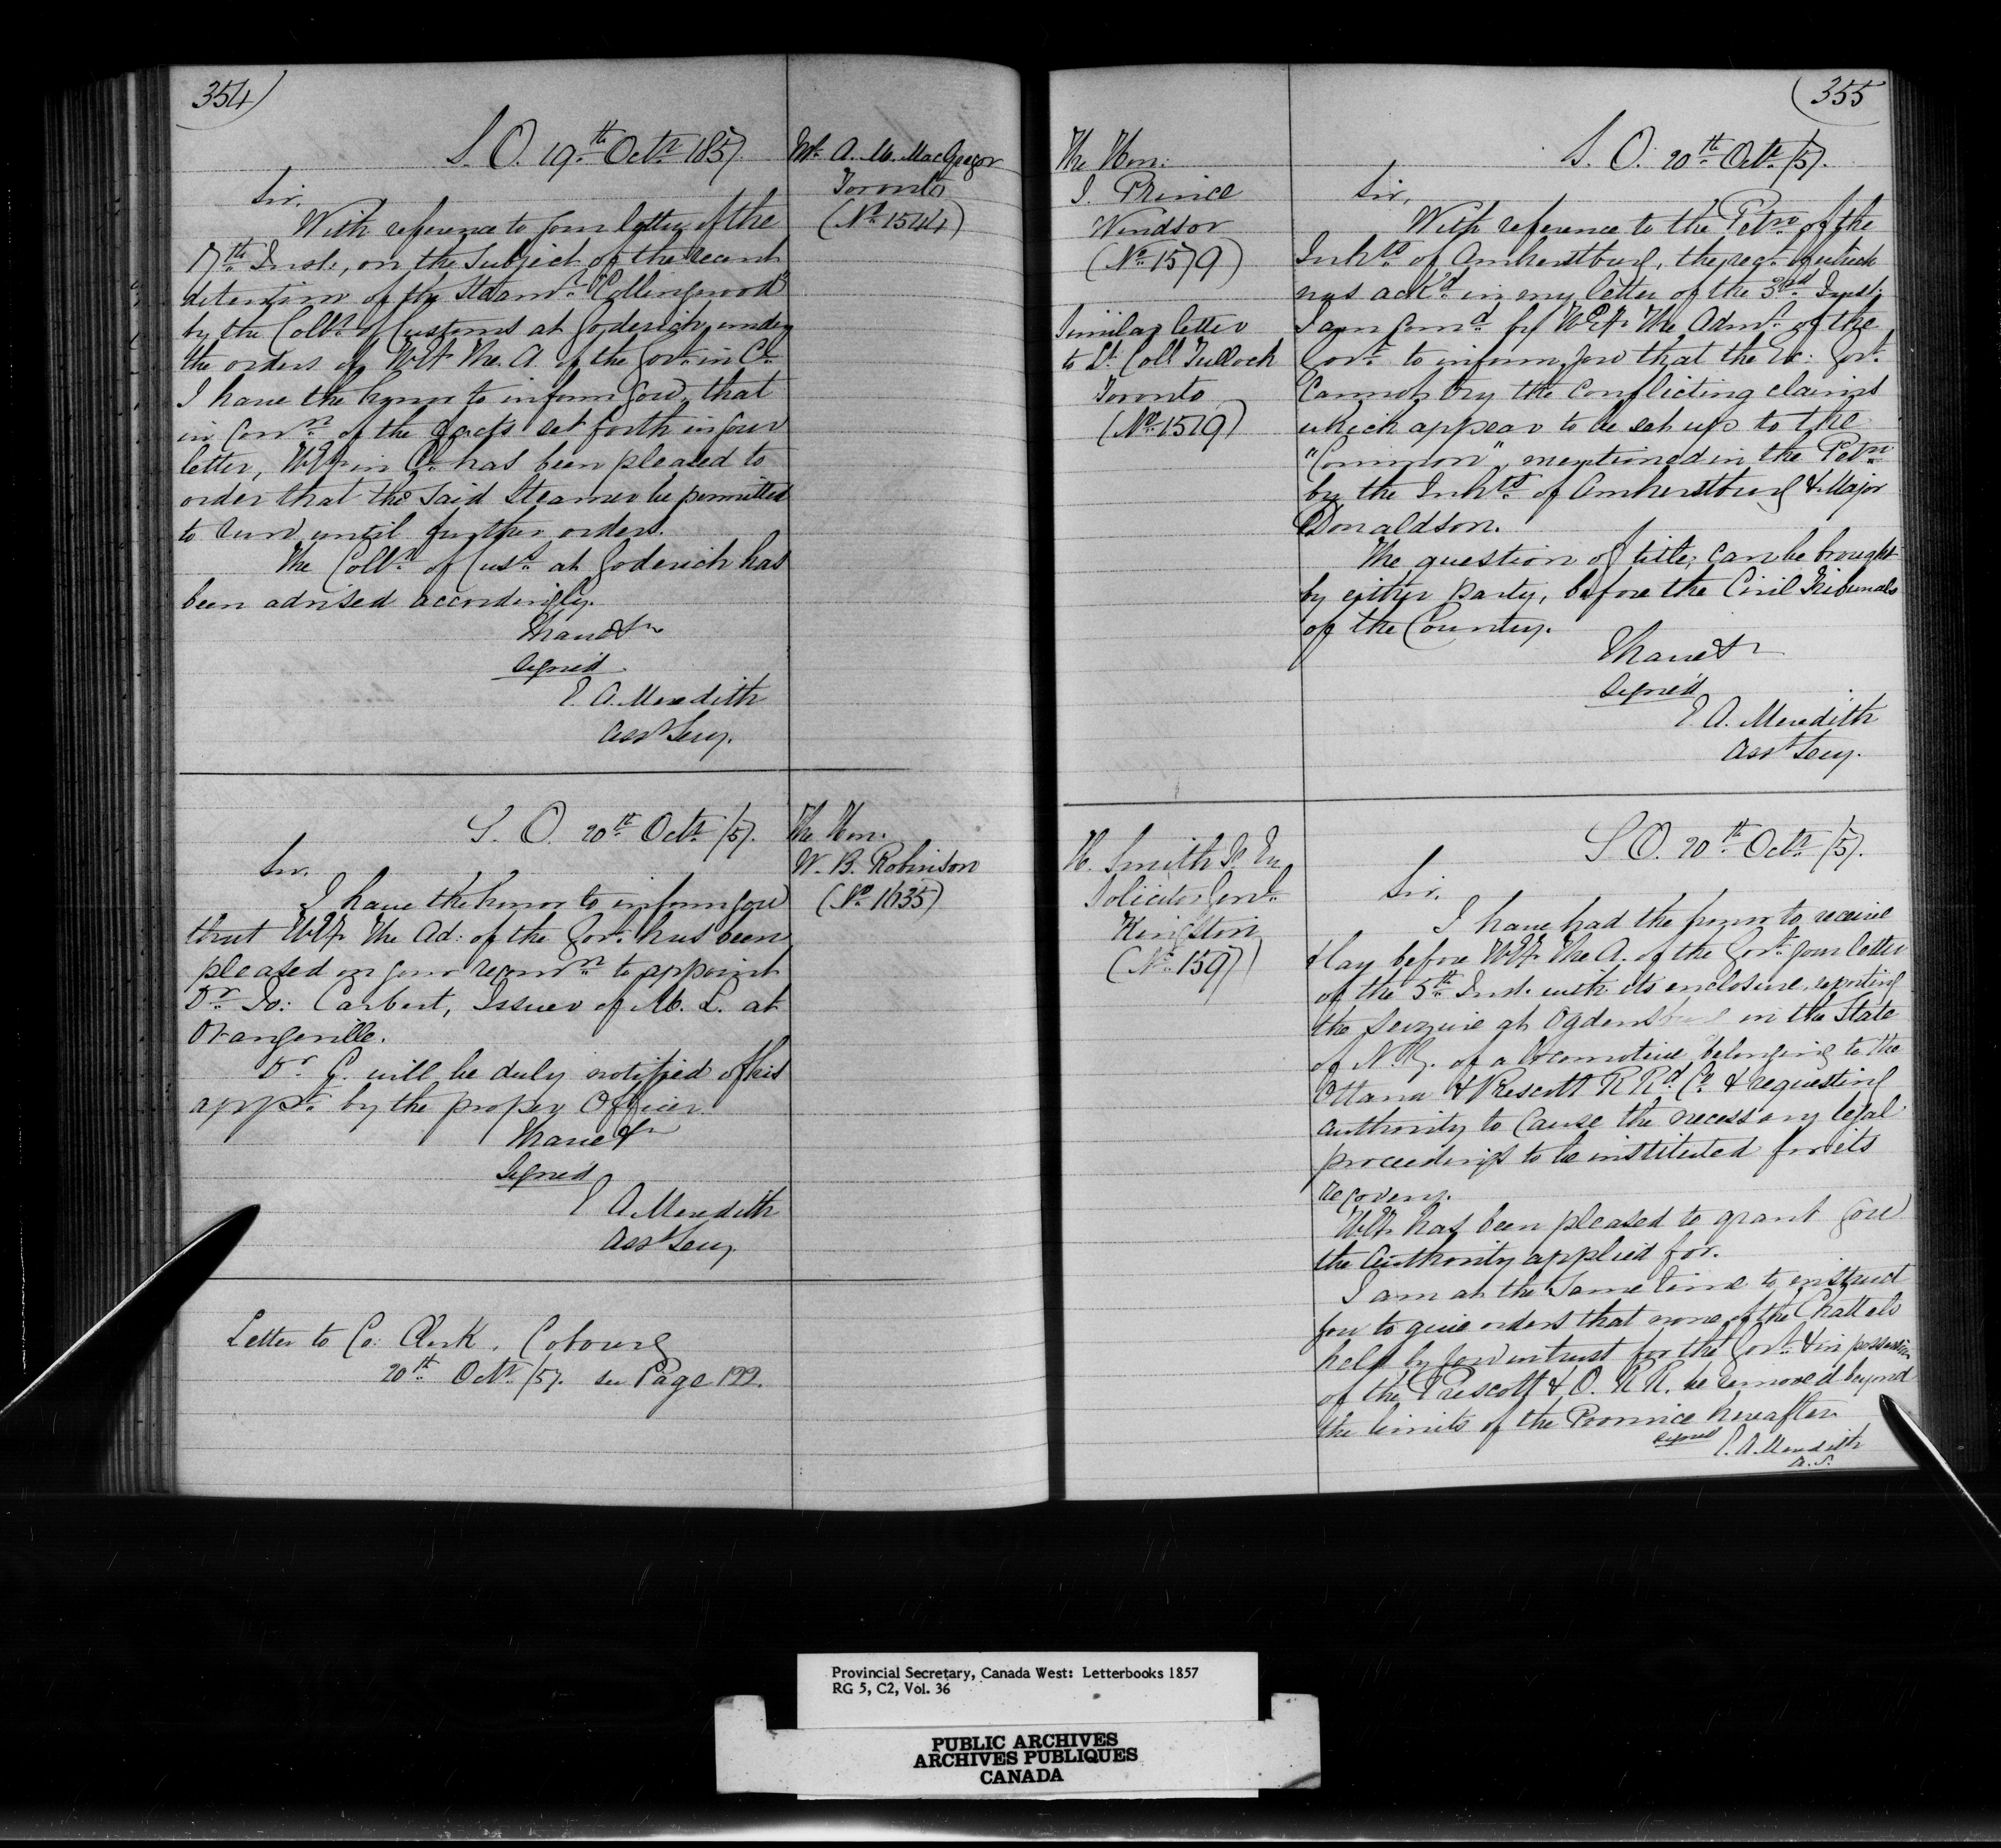 354)
S. O. 19th Octr 1857.
Mr A. M. MacGregor
Toronto
(No 1544)
Sir,
With reference to your letter of the
17th Inst., on the subject of the recent
detention of the Steamr "Collingwood"
by the Collr of Customs at Goderich, under
the orders of H.E. The A. of the Govt in Cl.
I have the honor to inform you, that
in Conn of the facts set forth in your
letter, H.E. in Cl. has been pleased to
order that the said Steamer be permitted
to run until further orders.
The Collr of Cust. at Goderich has
been advised accordingly.
I have &c
Signed
E. A. Meredith
Asst Secy.
S. O. 20th Octr /57.
The Hon:
W. B. Robinson
(No 1635)
Sir,
I have the honor to inform you
that H.E. The Ad: of the Govt. has been
pleased on your recomn to appoint
Dr Jo: Carbert, Issuer of M. L. at
Orangeville.
Dr C. will be duly notified of his
appt. by the proper Officer.
I have &c
Signed
E A. Meredith
Asst Secy.
Letter to Co: Clerk, Cobourg
20th Octr /57. see Page 122.
(355
The Hon:
J. Prince
Windsor
(No 1579)
Similar letter
to Lt. Coll Tulloch
Toronto
(No 1579)
S. O. 20th Octr /57.
Sir,
With reference to the Petn of the
Inhts of Amherstburg, the rect. of which
was ackd in my letter of the 3rd Inst.
I am Comd by H.E. The Admr of the
Govt to inform you that the Ex: Govt.
Cannot try the conflicting claims
which appear to be set up to the
"Common", mentioned in the Petn
by the Inhts of Amherstburg & Major
Donaldson.
The question of title, can be brought
by either Party, before the Civil Tribunals
of the Country.
I have &c
Signed
E. A. Meredith
Asst Secy.
H. Smith Jr Esq
Solicitor Genl.
Kingston
S O. 20th Octr /57.
Sir,
I have had the honor to receive
& lay before H.E. The A. of the Govt. your letter
of the 5th Inst. with its enclosure, reporting
the seizure at Ogdensburg in the State
of N. Y. of a locomotive belonging to the
Ottawa & Prescott R Rd Co & requesting
authority to Cause the necessary legal
proceedings to be instituted for its
recovery.
H.E. has been pleased to grant you
the authority applied for.
I am at the same time to instruct
you to give orders that none of the Chattels
held by you in trust for the Govt. & in possession
of the Prescott & O. R R. be removed beyond
the limits of the Province hereafter.
Signed E. A. Meredith
A. S.
Provincial Secretary, Canada West: Letterbooks 1857
RG 5, C2, Vol. 36
PUBLIC ARCHIVES
ARCHIVES PUBLIQUES
CANADA